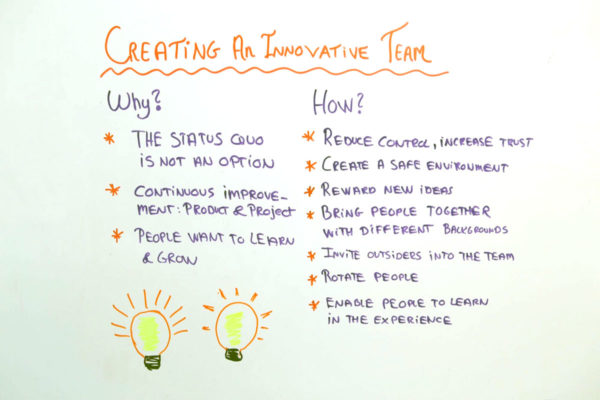 Creating An Innovative Team
Why?
* The status quo
is not an option
* Continuous improve-
ment: Product & Project
* People want to learn
& grow
How?
* Reduce control, increase trust
* Create a safe environment
* Reward new ideas
* Bring people together
with different backgrounds
* Invite outsiders into the team
* Rotate people
* Enable people to learn
in the experience